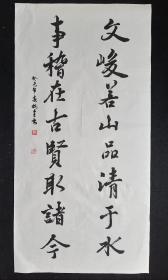 文峻若山品清于水
事稽在古賢取諸今